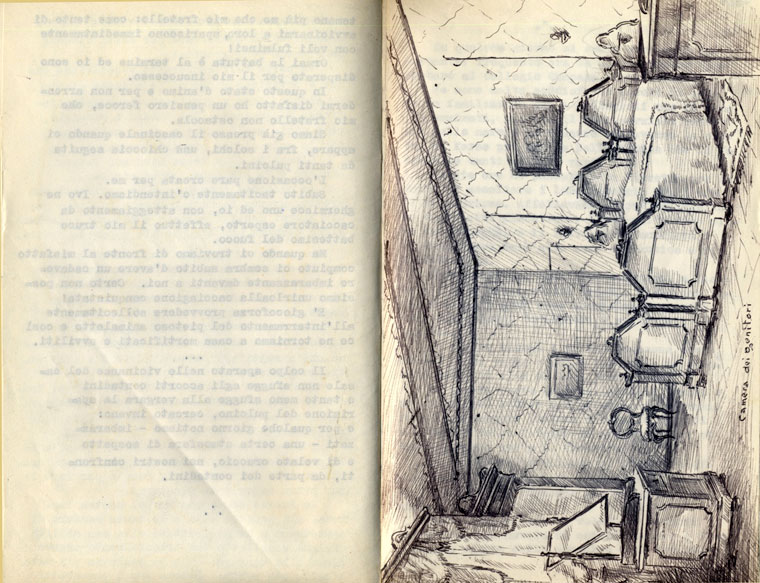 temono più me che mio fratello: come tento di
avvicinarmi a loro, spariscono immediatamente
con voli fulminei!
Ormai la battuta è al termine ed io sono
disperato per il mio insuccesso.
In questo stato d'animo e per non arren-
dermi disfatto ho un pensiero feroce, che
mio fratello non ostacola.
Siamo già presso il cascinale quando ci
appare, fra i solchi, una chioccia seguita
da tanti pulcini.
L'occasione pare creata per me.
Subito tacitamente c'intendiamo. Ivo ne
ghermisce uno ed io, con atteggiamento da
cacciatore esperto, effettuo il mio truce
battesimo del fuoco.
Ma quando ci troviamo di fronte al misfatto
compiuto ci sembra subito d'avere un cadave-
re imbarazzante davanti a noi. Certo non pos-
siamo unirlo alla cacciagione conquistata!
E' giocoforza provvedere sollecitamente
all'interramento del pietoso animaletto e così
ce ne torniamo a casa mortificati e avviliti.
...
Il colpo sparato nelle vicinanze del ca-
sale non sfugge agli accorti contadini
e tanto meno sfugge alla vergara la spa-
rizione del pulcino, cercato invano:
e per qualche giorno notiamo - imbaraz-
zati - una certa atmosfera di sospetto
e di velato cruccio, nei nostri confron-
ti, da parte dei contadini.
...
Camera dei genitori